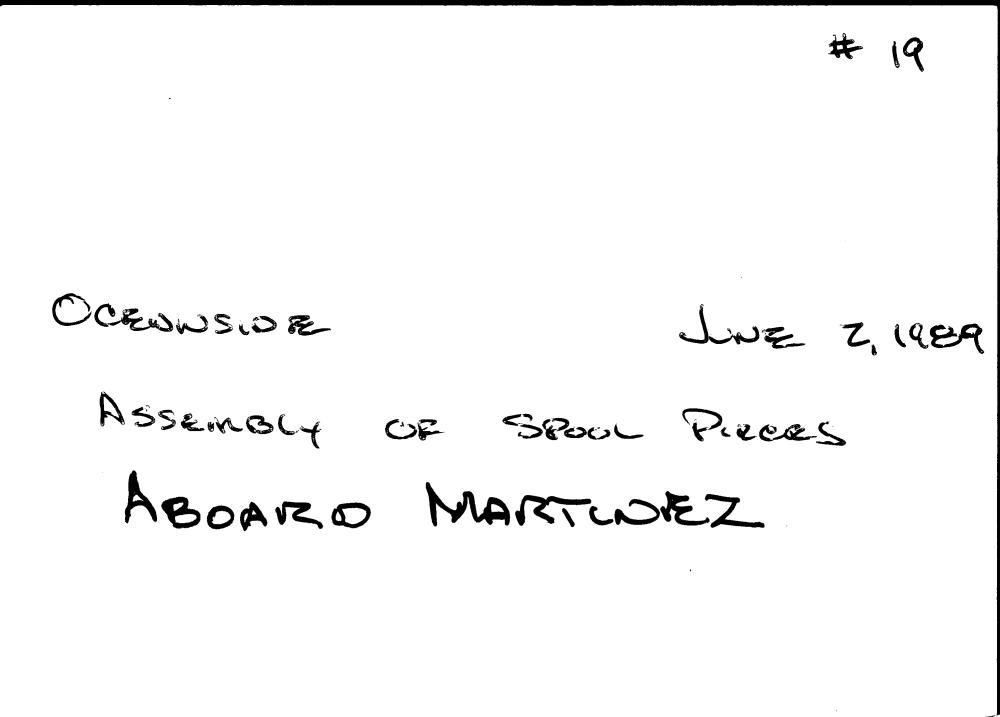 # 19
OCEANSIDE JUNE 2, 1989
ASSEMBLY OF SPOOL PIECES
ABOARD MARTINEZ